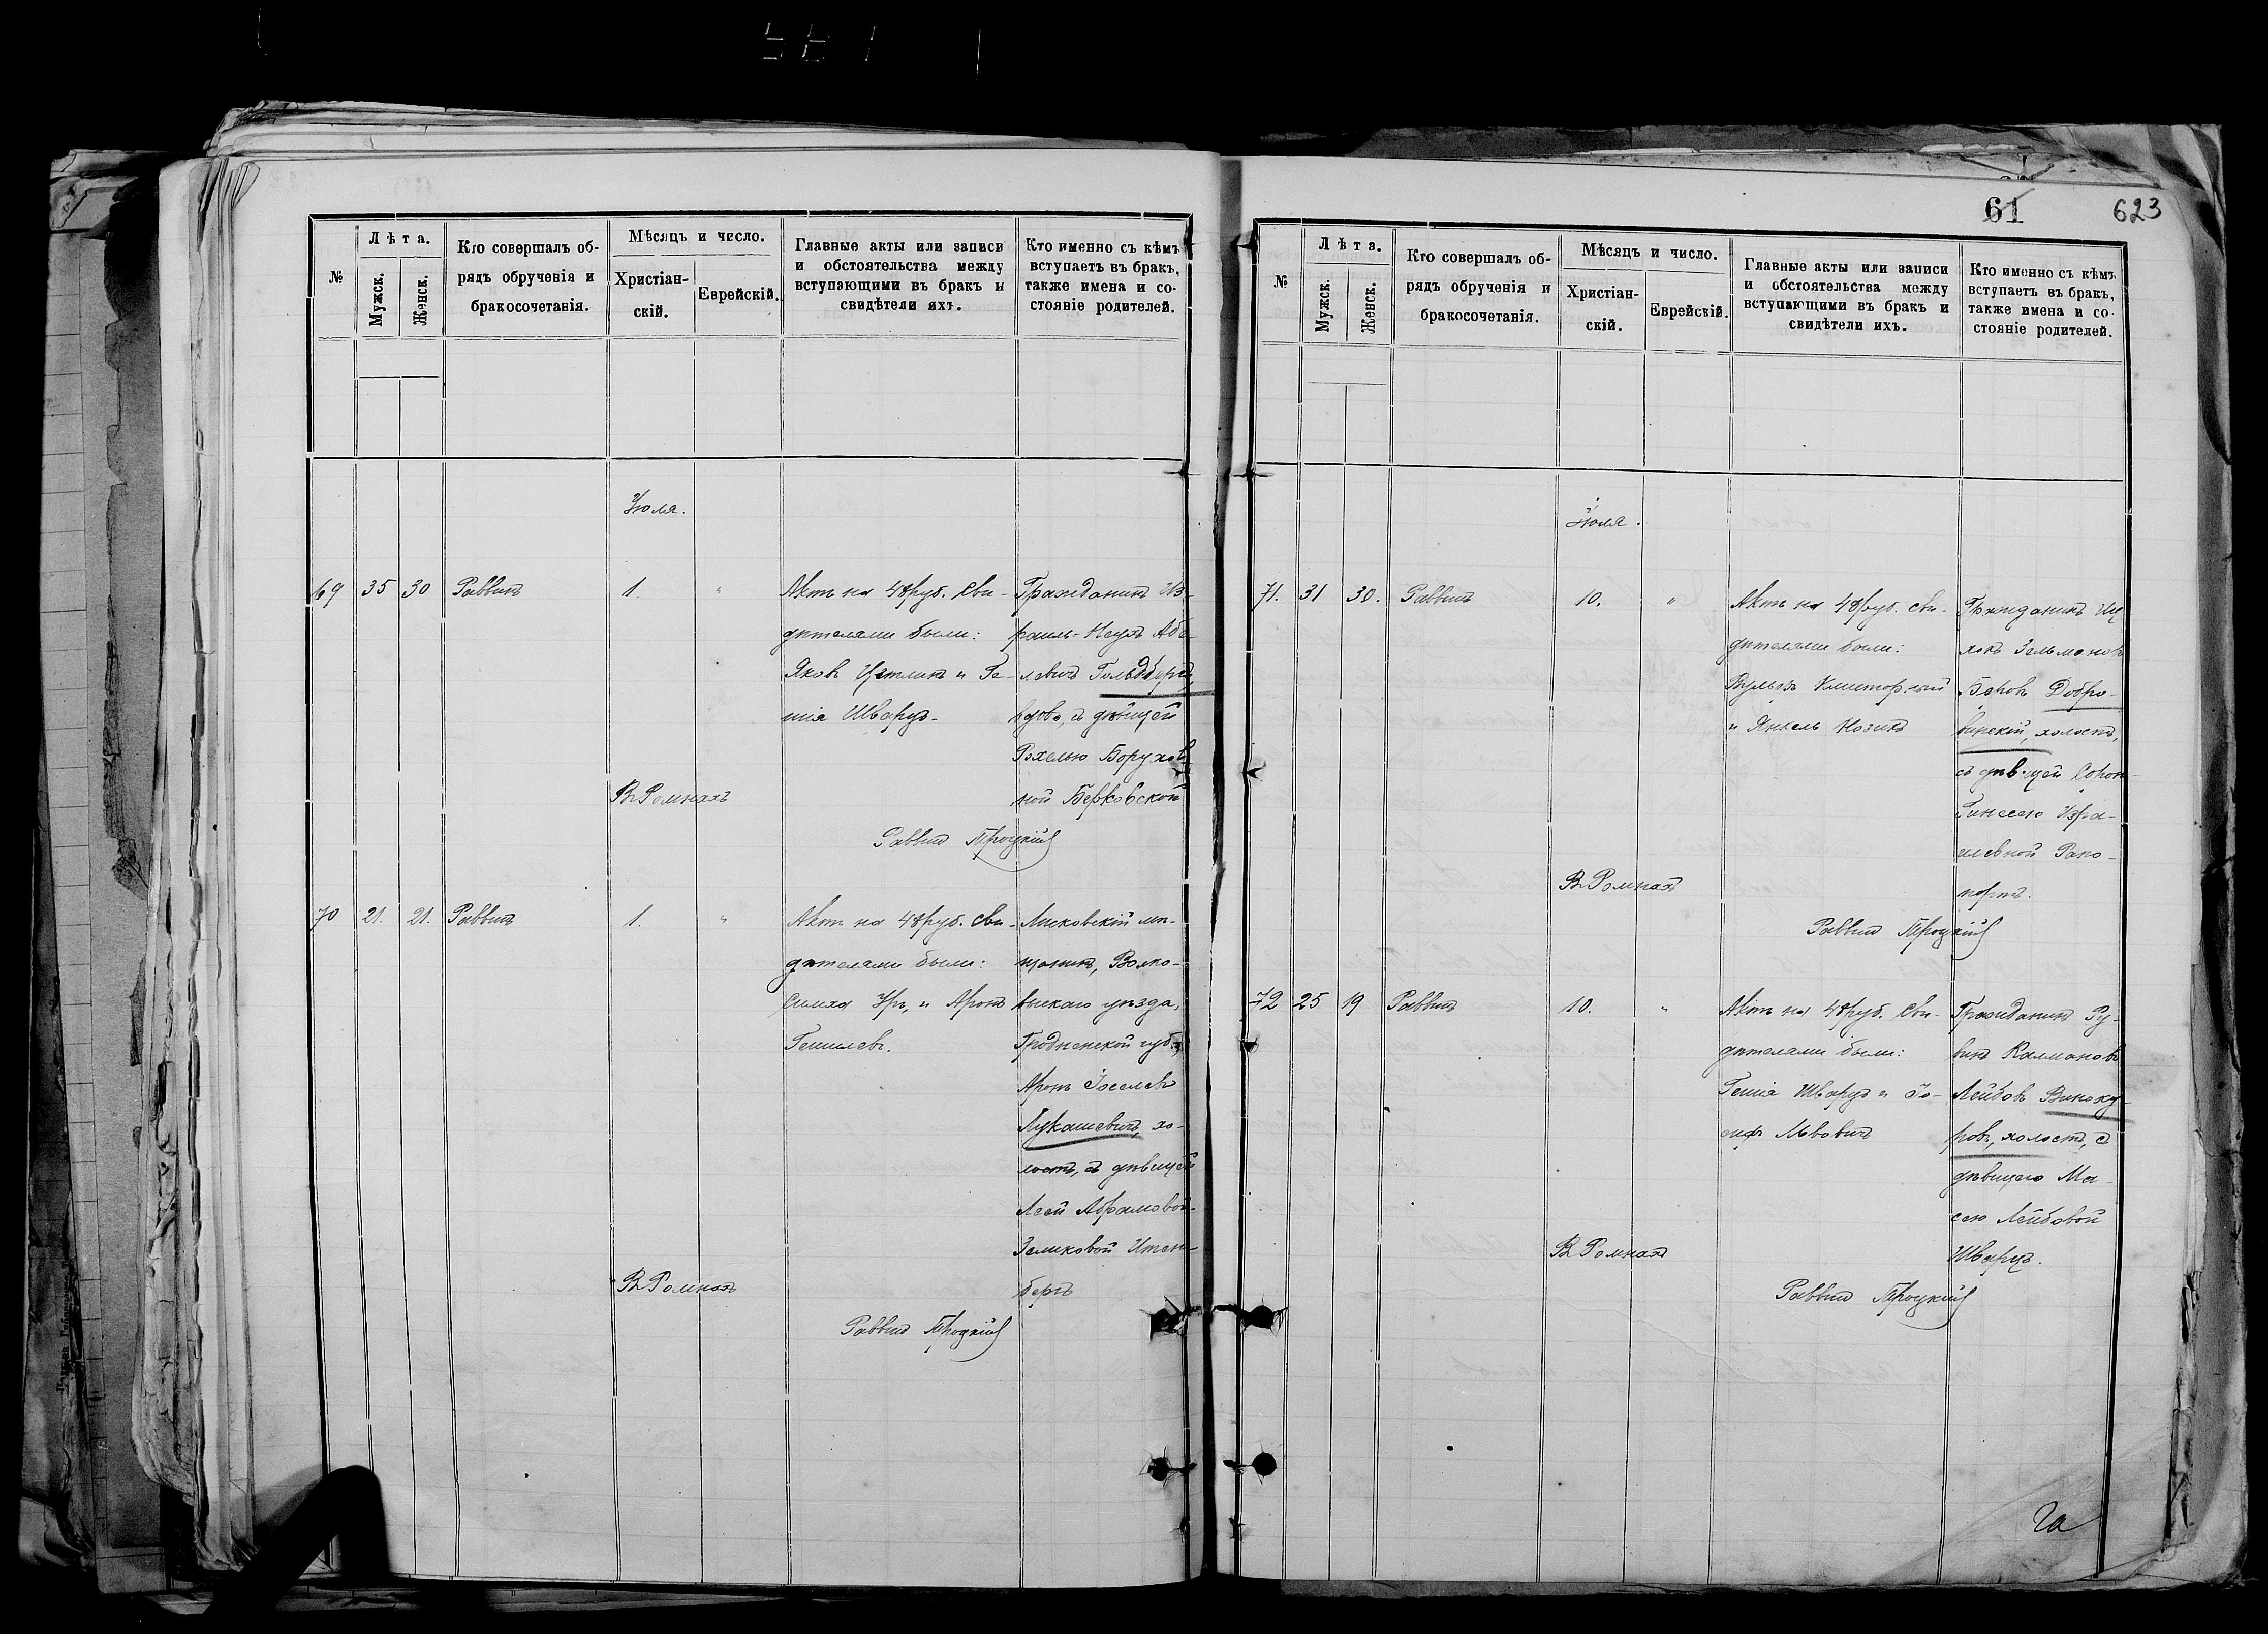 №
Лѣта.
Мужск.
Женск.
Кто совершалъ об-
рядъ обрученія и
бракосочетанія.
Мѣсяцъ и число.
Христіан-
скій.
Еврейскій.
Главные акты или записи
и обстоятельства между
вступающими въ бракъ и
свидѣтели ихъ.
Кто именно съ кѣмъ
вступаетъ въ бракъ,
также имена и со-
стояніе родителей.
Іюля.
69 35 30 Раввинъ 1. "
Актъ на 48 руб. Сви-
дѣтелями были:
Яковъ Цетлинъ и Ге-
шія Шварцъ.
Гражданинъ Из-
раиль-Неухъ Абе-
левичъ Гольдбергъ,
вдовъ, съ дѣвицей
Рохелью Борухов-
ной Берковской
Въ Ромнахъ
Раввинъ Троцкій
70 21. 21. Раввинъ 1. "
Актъ на 48 руб. Сви-
дѣтелями были:
Симха и Аронъ
Гешилевъ.
Лысковскій мѣ-
щанинъ, Волко-
выскаго уѣзда,
Гродненской губ.,
Аронъ Іоселевъ
Лукашевичъ, хо-
лостъ, съ дѣвицей
Леей Абрамовой-
Зеликовой Итен-
бергъ
Въ Ромнахъ
Раввинъ Троцкій
61 623
№
Лѣта.
Мужск.
Женск.
Кто совершалъ об-
рядъ обрученія и
бракосочетанія.
Мѣсяцъ и число.
Христіан-
скій.
Еврейскій.
Главные акты или записи
и обстоятельства между
вступающими въ бракъ и
свидѣтели ихъ.
Кто именно съ кѣмъ
вступаетъ въ бракъ,
также имена и со-
стояніе родителей.
Іюля.
71. 31 30. Раввинъ 10. "
Актъ на 48 руб. Сви-
дѣтелями были:
Вульфъ
и Янкель Козинъ
Гражданинъ Иц-
хокъ Зельманов
Боровъ Добро-
винскій, холостъ,
съ дѣвицей Сорой-
Гинесею Изра-
илевной Рапо-
портъ.
Въ Ромнахъ
Раввинъ Троцкій
72 25 19 Раввинъ 10. "
Актъ на 48 руб. Сви-
дѣтелями были:
Гешія Шварцъ и Іо-
сифъ Львовичъ
Гражданинъ Ру-
винъ Калмановъ
Лейбовъ Виноку-
ровъ, холостъ, съ
дѣвицею Ма-
сею Лейбовой
Шварцъ.
Въ Ромнахъ
Раввинъ Троцкій